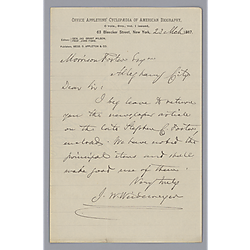 OFFICE APPLETONS' CYCLOPÆDIA OF AMERICAN BIOGRAPHY,
63 Bleecker Street, New York, 22 Mch 1887.
Morrison Foster Esq
Alleghany City
Dear Sir:
I beg leave to return
you the newspaper article
on the late Stephen C. Foster
enclosed. We have noted the
principal items and shall
make good use of them.
Very truly